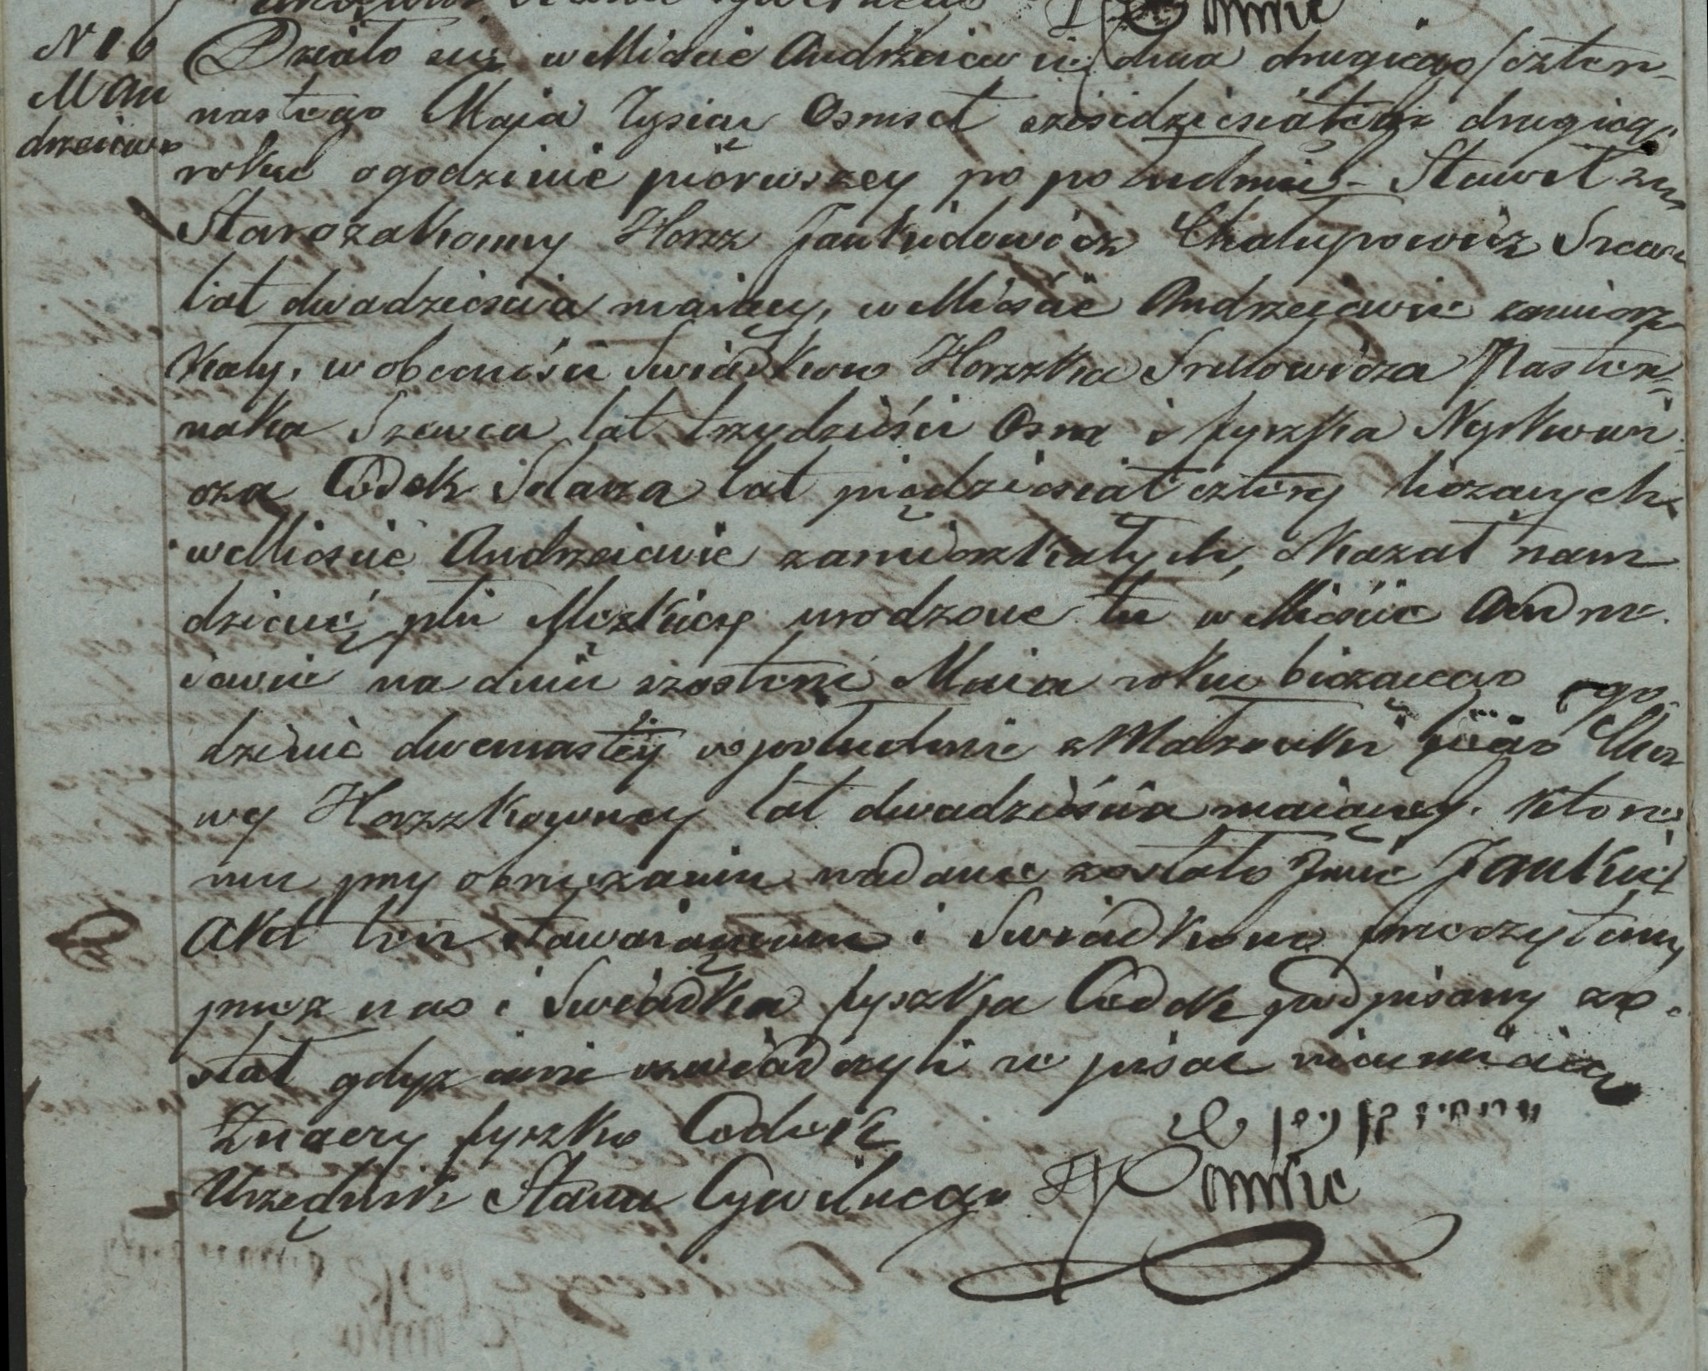 N 16
M An
drzeiew
Działo się w Mieście Andrzeiewie dnia drugiego/czter-
nastego Maja Tysiąc Osmset sześćdziesiątego drugiego
roku o godzinie pierwszey po południu - Stawił się
Starozakonny Herszk Jankielowicz Chalupowicz Szewc
lat dwadzieścia maiący, w Mieście Andrzejewie zamiesz
kały, w obecności Swiadków Herszka Srulowicza Paster-
naka Szewca lat trzydzieści Osm i
Codek lat piędziesiąt cztery liczących
w Mieście Andrzeiewie zamieszkałych, Okazał nam
dziecię płci Mezkiey urodzone tu w Mieście Andrze
iewie na dniu szostem Maia roku bieżącego o go
dzinie dwunastey w południe z Małżonki jego
wy Herszkowney lat dwadzieścia maiącey. które
mu przy obrzezaniu nadane zostało Imie Jankiel
Akt ten stawaiącemu i Swiadkom przeczytany
przez nas i Swiadka Jyszka Codek podpisany zo-
stał gdyż inni oswiadczyli że pisać nieumieią
Znaczy Jyszko Codek
Urzędnik Stanu Cywilnego